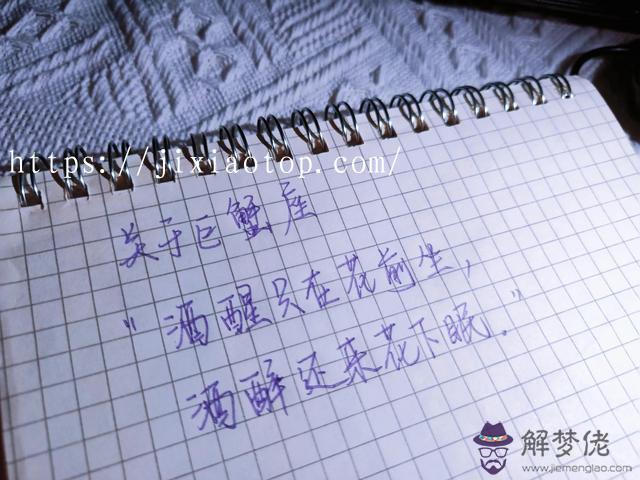 https://jixiaotop.com/
关于巨蟹座
"酒醒只在花前生,
酒醉还来花下眠."
解梦佬
www.jiemenglao.com